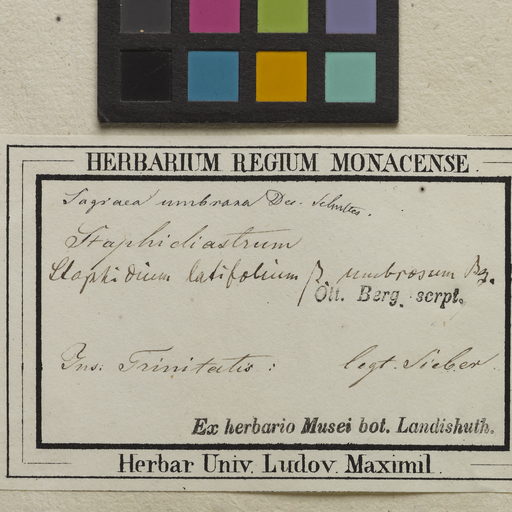 HERBARIUM REGIUM MONACENSE.
Sagraea umbrosa Dec. Schultes.
Staphidiastrum
Staphidium latifolium β umbrosum Bg.
Ott. Berg. scrpt.
Ins: Trinitatis: legt. Sieber.
Ex herbario Musei bot. Landishuth.
Herbar Univ. Ludov. Maximil.